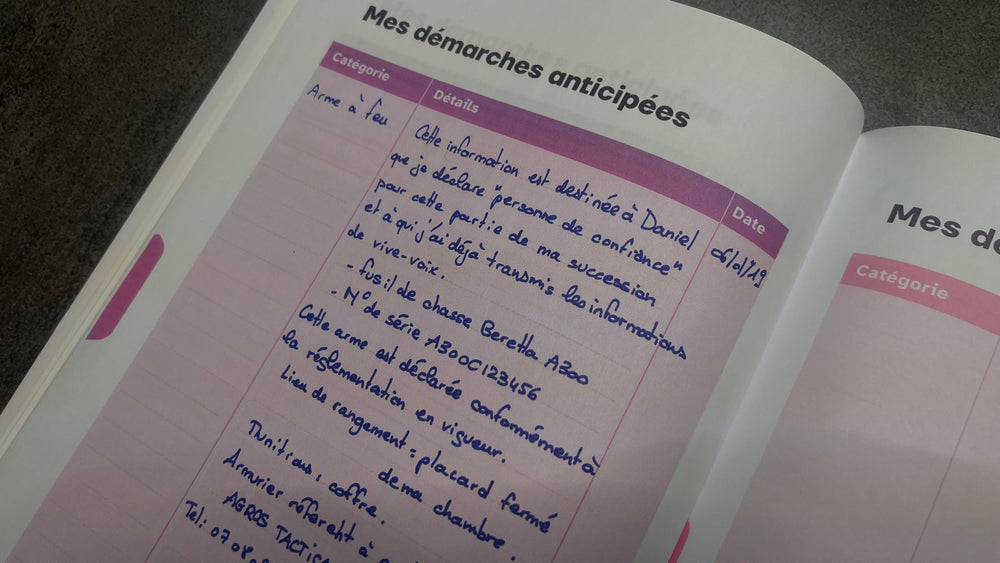 Mes démarches anticipées
Catégorie
Détails
Date
Arme à feu
Cette information est destinée à Daniel
que je déclare "personne de confiance"
pour cette partie de ma succession
et à qui j'ai déjà transmis les informations
de vive-voix.
- fusil de chasse Beretta A300
- N° de série A300C123456
Cette arme est déclarée conformément à
la réglementation en vigueur.
Lieu de rangement : placard fermé
de ma chambre.
Munitions : coffre.
Armurier référent à
AGROS
Tel: 07 08
06/01/19
Mes
Catégorie